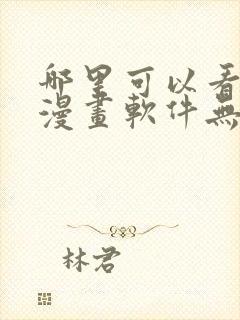 哪里可以看
漫畫軟件無
林君